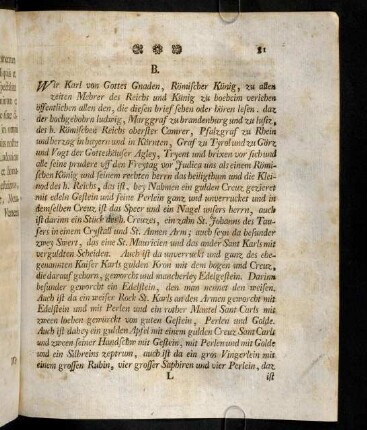 81
B.
Wir Karl von Gottes Gnaden, Römischer Künig, zu allen
zeiten Mehrer des Reichs und Künig zu boeheim verichen
öffentlichen allen den, die diesen brief sehen oder hören lesen. daz
der hochgebohrn ludwig, Marggraf zu brandenburg und zu lusiz,
des h. Römischen Reichs oberster Camrer, Pfalzgraf zu Rhein
und herzog in bayern und in Kärnten, Graf zu Tyrol und zu Görz
und Vogt der Gotteshäuser Agley, Tryent und brixen vor sich und
alle seine prudere uff den Freytag vor Judica uns als einem Römi-
schen König und seinem rechten herrn das heiligthum und die Klei-
nod des h. Reichs, das ist, bey Nahmen ein gulden Creuz, gezieret
mit edeln Gestein und seine Perlein ganz und unverruckt und in
demselben Creuz ist das Speer und ein Nagel unsers herrn, auch
ist darinn ein Stück des h. Creuzes, ein zahn St. Johanns des Tau-
fers in einem Crystall und St. Annen Arm; auch seyn da besunder
zwey Swert, das eine St. Mauricien und das ander Sant Karls mit
verguldten Scheiden. Auch ist da unverruckt und ganz des ehe-
genannten Kaiser Karls gulden Kron mit dem bogen und Creuz,
die darauf gehorn, geworcht und mancherley Edelgestein. Darinn
besunder geworcht ein Edelstein, den man nennet den weisen.
Auch ist da ein weiser Rock St. Karls an den Armen geworcht mit
Edelstein und mit Perlen und ein rother Mantel Sant Carls mit
zween loeben gewürckt von guten Gestein, Perlen und Golde.
Auch ist dabey ein gulden Apfel mit einem gulden Creuz Sant Carls
und zween seiner Handschw mit Gestein, mit Perlen und mit Golde
und ein Silbreins zeptrum, auch ist da ein gros Vingerlein mit
einem grossen Rubin, vier grosser Saphiren und vier Perlein, daz
L
ist